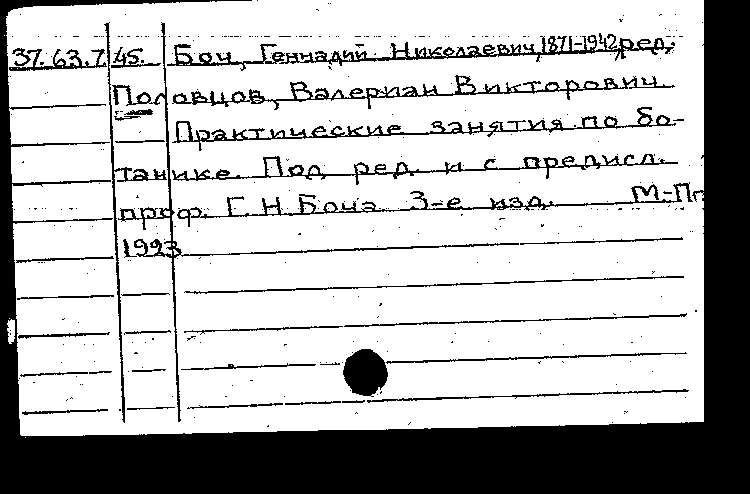 37.63.7.45. Боч, Геннадий Николаевич, 1871-1942, ред.
Половцов, Валериан Викторович
Практические занятия по бо-
танике. Под ред. и с предисл.
проф. Г. Н. Боча 3-е изд. М-Пг
1923